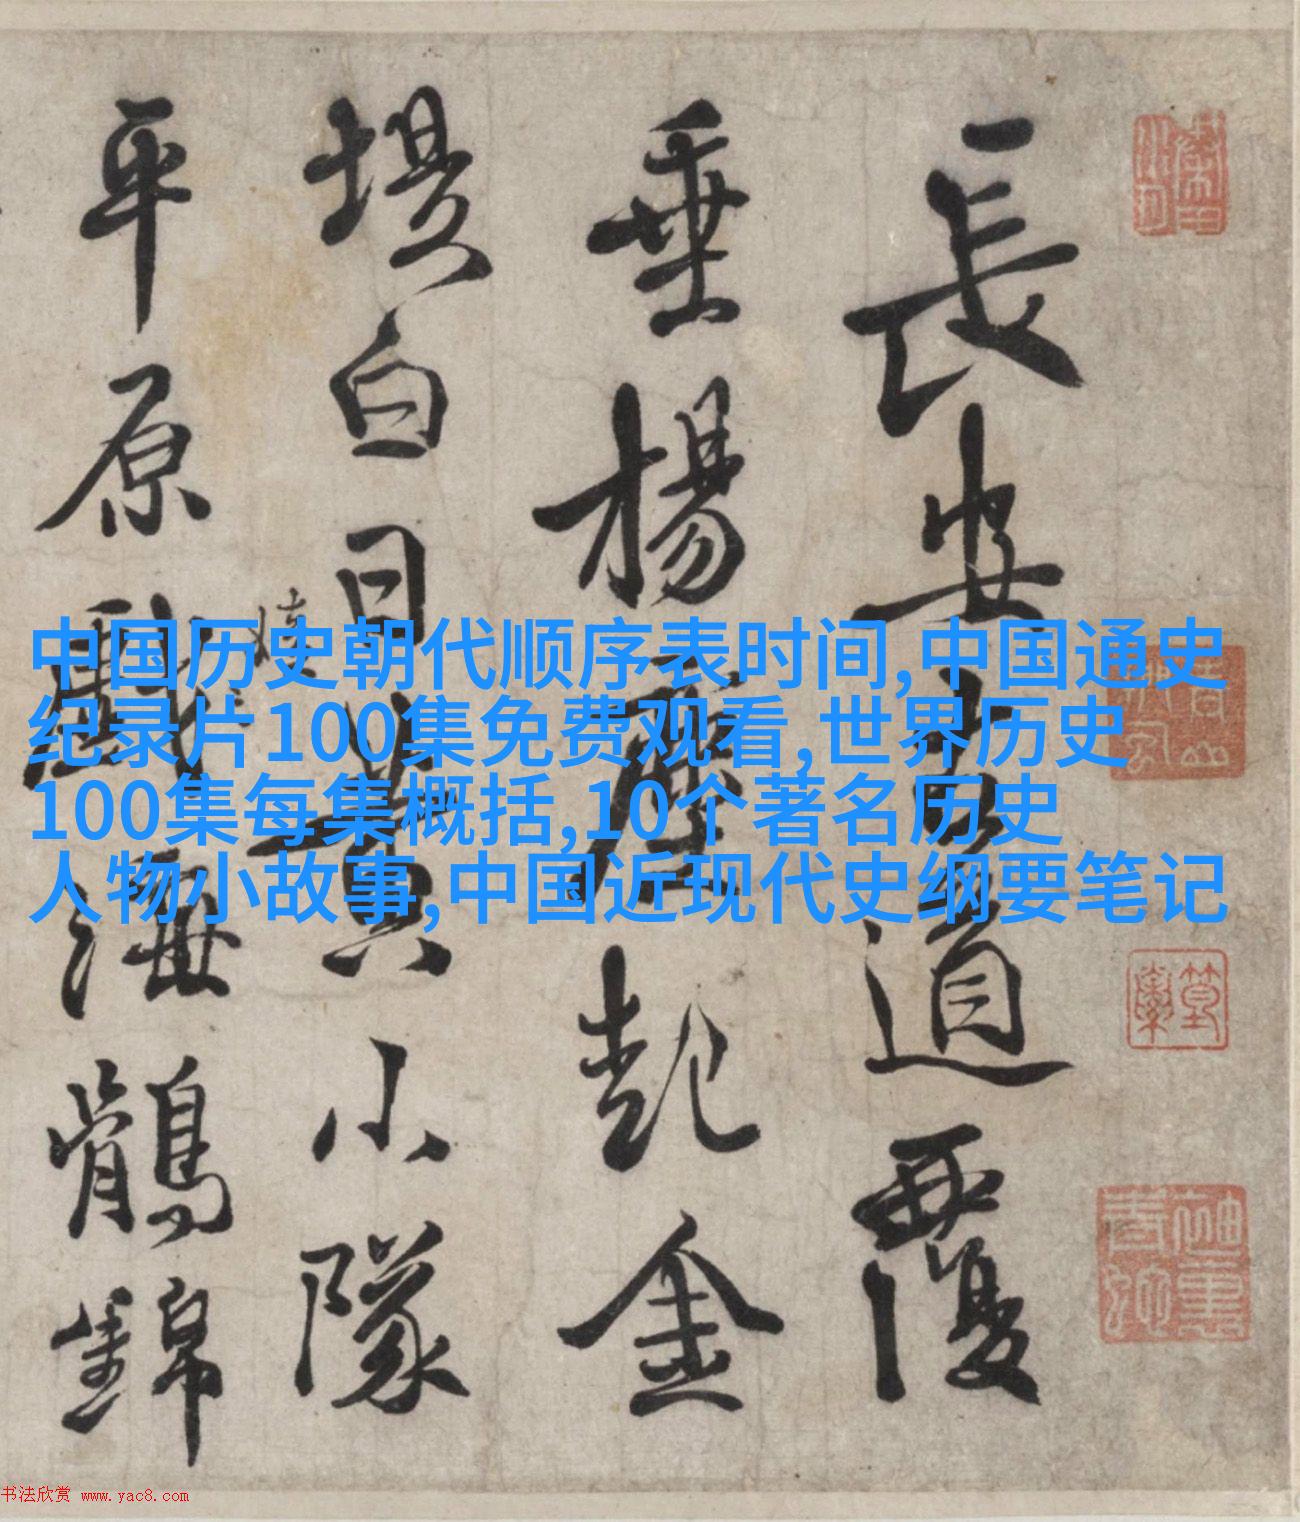 中国历史朝代顺序表时间,中国通史
纪录片100集免费观看,世界历史
100集每集概括,10个著名历史
人物小故事,中国近现代史纲要笔记
長安道覆
垂楊塵起金
堤白日黃小隊
平原海鶻錦
书法欣赏 www.yac8.com